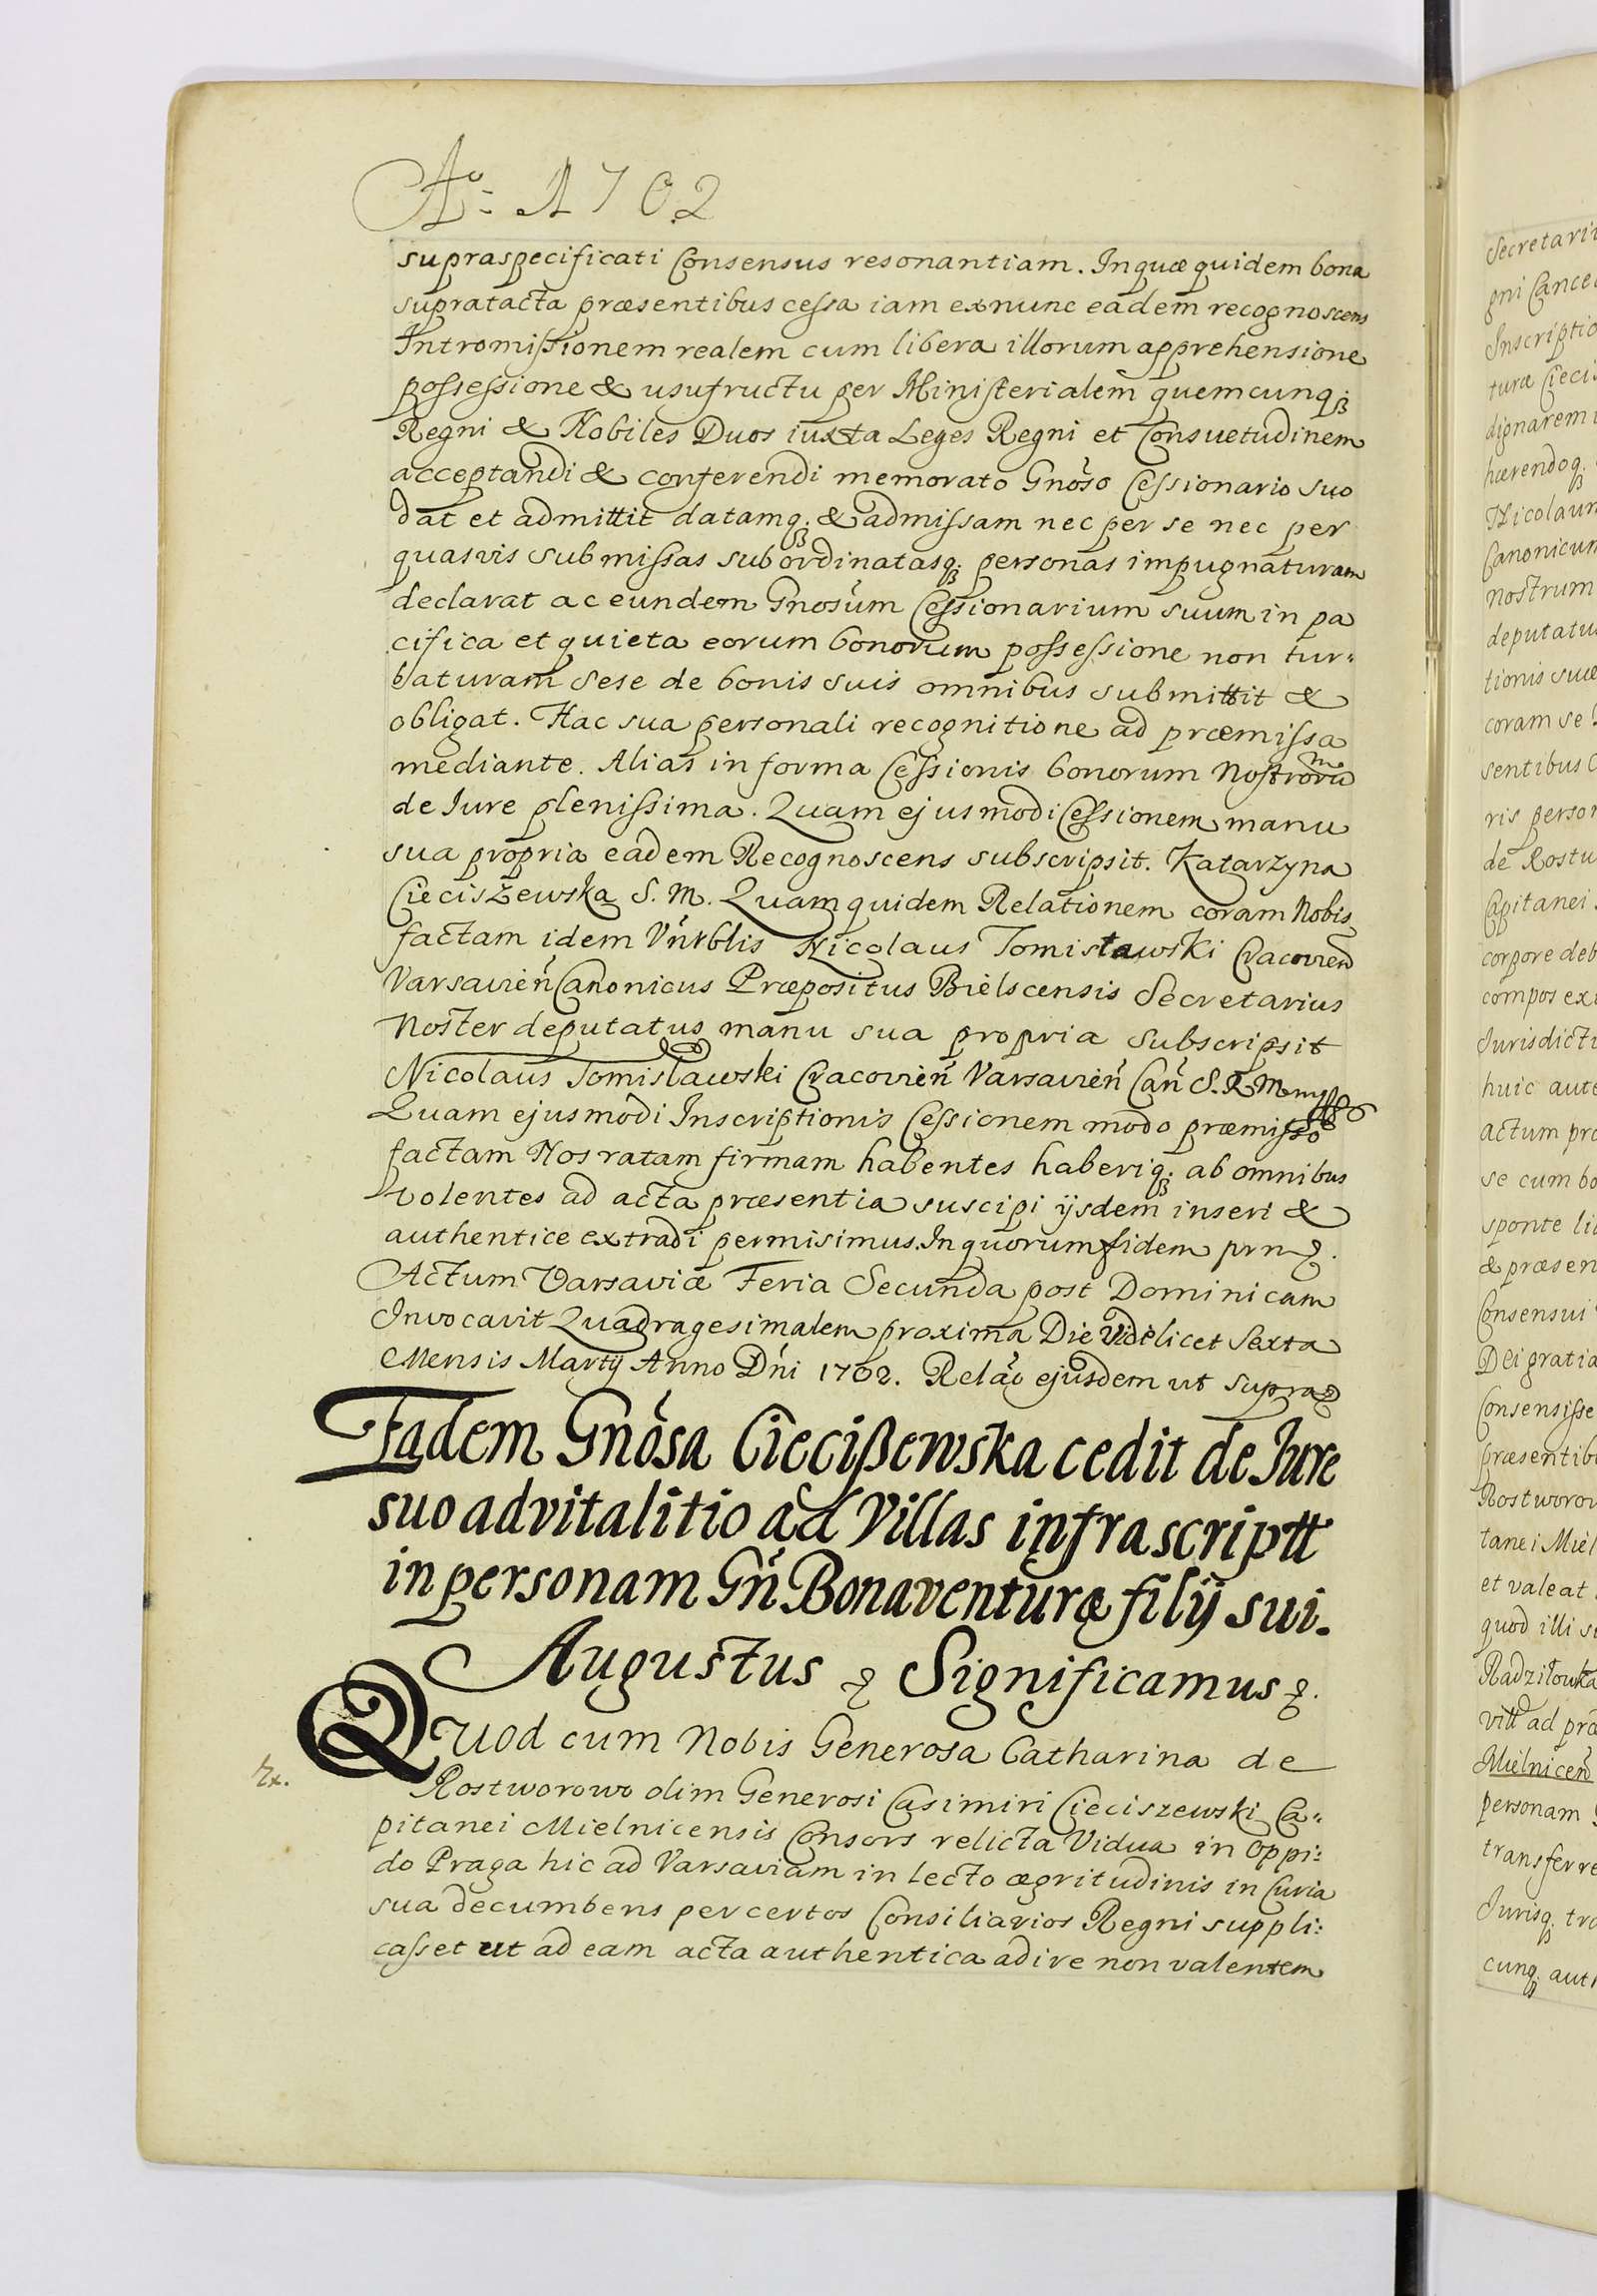 Aº: 1702
supraspecificati Consensus resonantiam. In quæ quidem bona
supratacta præsentibus cessa iam exnunc eadem recognoscens
Intromissionem realem cum libera illorum apprehensione
possessione & usufructu per Ministerialem quemcunq;
Regni & Nobiles Duos iuxta Leges Regni et Consvetudinem
acceptandi & conferendi memorato Gnoso Cessionario suo
dat et admittit datamq; & admissam nec per se nec per
quasvis submissas subordinatasq; personas impugnaturam
declarat ac eundem Gnosum Cessionarium suum in pa
cifica et quieta eorum bonorum possessione non tur=
baturam sese de bonis suis omnibus submittit &
obligat. Hac sua personali recognitione ad præmissa
mediante. Alias in forma Cessionis bonorum Nostrorum
de Iure plenissima. Quam ejusmodi Cessionem manu
sua propria eadem Recognoscens subscripsit. Katarzyna
Cieciszewska S. M. Quam quidem Relationem coram Nobis
factam idem Vnrblis Nicolaus Tomisławski Cracovien
Varsavien Canonicus Præpositus Bielscensis Secretarius
Noster deputatus manu sua propria subscripsit
Nicolaus Tomislawski Cracovien Varsavien Can S. R. M.
Quam ejusmodi Inscriptionis Cessionem modo præmisso
factam Nos ratam firmam habentes haberiq; ab omnibus
volentes ad acta præsentia suscipi ijsdem inseri &
authentice extradi permisimus. In quorum fidem prn
Actum Varsaviæ Feria Secunda post Dominicam
Invocavit Quadragesimalem proxima Die Videlicet Sexta
Mensis Martij Anno Dni 1702. Relao ejusdem ut supra
Eadem Gnosa Ciecißewska cedit de Iure
suo advitalitio ad Villas infrascriptt
in personam Gn Bonaventuræ filij sui.
Augustus Significamus
Quod cum Nobis Generosa Catharina de
Rostworowo olim Generosi Casimiri Cieciszewski Ca=
pitanei Mielnicensis Consors relicta Vidua in Oppi=
do Praga hic ad Varsaviam in lecto ægritudinis in Curia
sua decumbens per certos Consiliarios Regni suppli=
casset ut ad eam acta authentica adire non valentem
Secretari
gni Cance
Inscriptio
turæ Cieci
dignarem
hærendoq;
Nicolaum
Canonicum
Nostrum
deputatu
tionis suæ
coram se
sentibus
ris person
de Rostw
Capitanei
corpore deb
compos ex
Jurisdicti
huic aute
actum præ
se cum bo
sponte li
& præsen
Consensui
Dei gratia
Consensisse
præsentib
Rostworow
tanei Miel
et valeat
quod illi s
Radziłowka
vill ad præ
Mielnicen
personam
transferre
Jurisq; tra
cunq; auth